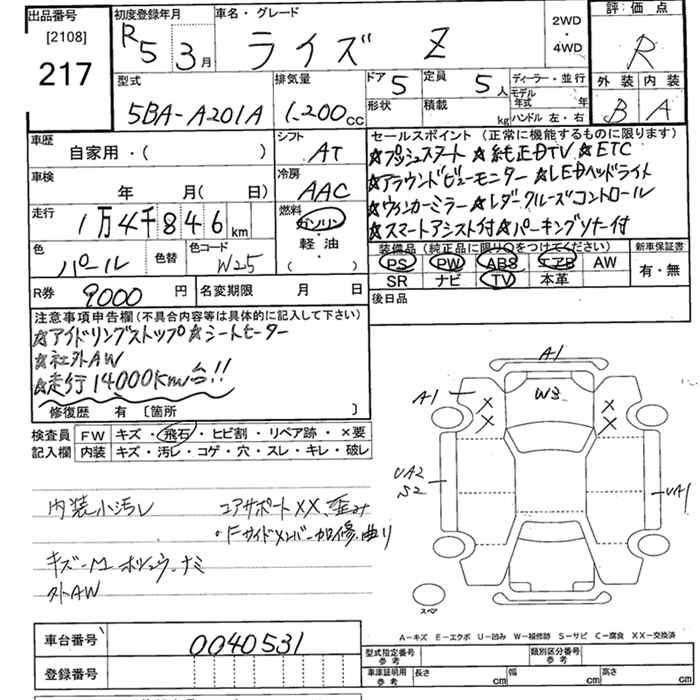 出品番号
[2108]
217
初度登録年月
R5 3月
車名・グレード
ライズ Z
2WD
・
4WD
評価点
R
外装 内装
B A
型式
5BA-A201A
排気量
1,200cc
ドア 5
定員 5人
形状
積載 kg
ディーラー・並行
モデル年式 年
ハンドル 左・右
車歴
自家用・( )
車検
年 月( 日)
走行
1万4千846km
色
パール
色替
色コード
W25
シフト
AT
冷房
AAC
燃料
ガソリン
軽油
( )
セールスポイント (正常に機能するものに限ります)
☆プッシュスタート ☆純正DTV ☆ETC
☆アラウンドビューモニター ☆LEDヘッドライト
☆ウインカーミラー ☆レダークルーズコントロール
☆スマートアシスト付 ☆パーキングソナー付
装備品 (純正品に限り○をつけてください)
PS PW ABS エアB AW
SR ナビ TV 本革
新車保証書
有・無
後日品
R券 9000円
名変期限 月 日
注意事項申告欄(不具合内容等は具体的に記入して下さい)
☆アイドリングストップ ☆シートヒーター
☆社外AW
☆走行14000km台!!
修復歴 有 〔箇所 〕
検査員記入欄
FW キズ・飛石・ヒビ割・リペア跡・×要
内装 キズ・汚レ・コゲ・穴・スレ・キレ・破レ
内装小汚レ
コアサポートXX、歪み
・Fサイドメンバー加修、曲り
キズ-M
外AW
A1
A1
W3
X X
X X
UA2
S2
UA1
スペア
A-キズ E-エクボ U-凹み W-補修跡 S-サビ C-腐食 XX-交換済
車台番号
0040531
登録番号
型式指定番号 参考
類別区分番号 参考
車庫証明用 参考
長さ cm
幅 cm
高さ cm